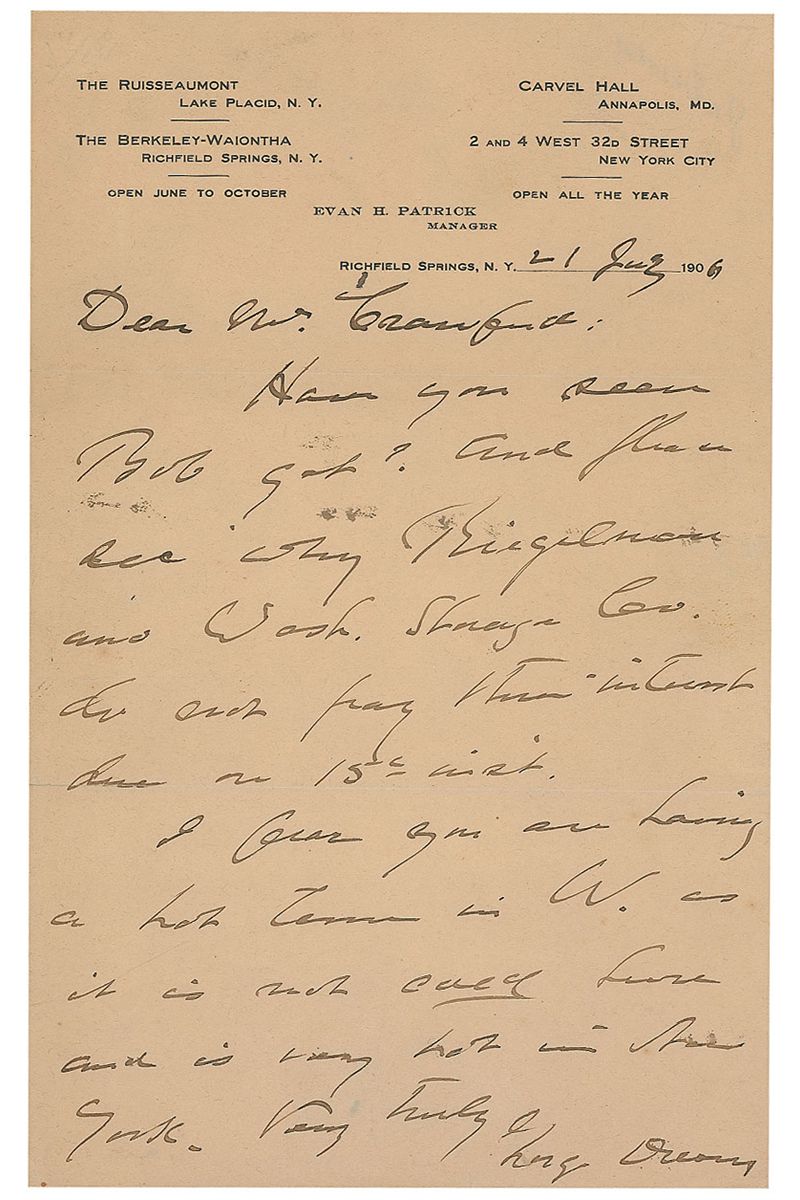 THE RUISSEAUMONT
LAKE PLACID, N. Y.
THE BERKELEY-WAIONTHA
RICHFIELD SPRINGS, N. Y.
OPEN JUNE TO OCTOBER
CARVEL HALL
ANNAPOLIS, MD.
2 AND 4 WEST 32D STREET
NEW YORK CITY
OPEN ALL THE YEAR
EVAN H. PATRICK
MANAGER
RICHFIELD SPRINGS, N. Y. 21 1906
Dear Mr. Crawford:
Have you seen
Bob yet? And please
see why Riegelman
and Wash. Storage Co.
do not pay their interest
due on 15th inst.
I fear you are having
a hot time in W. as
it is not cold here
and is very hot in New
York. Very truly
George Dewey